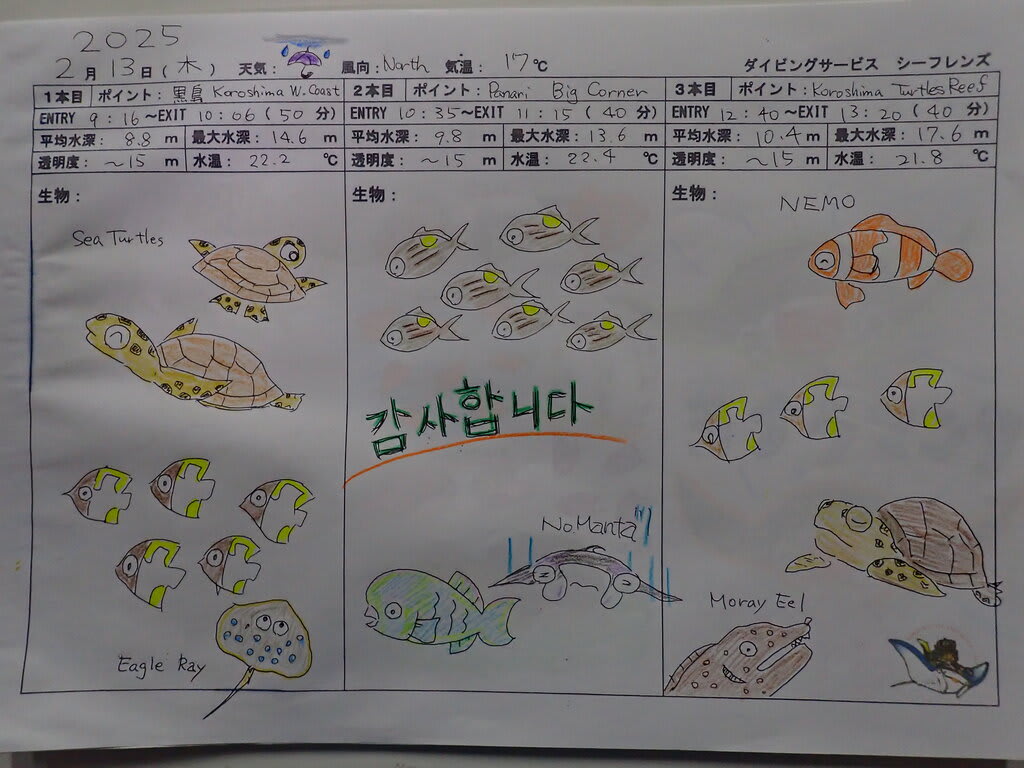 2025
2月13日(木) 天気: 風向:North 気温: 17℃ ダイビングサービス シーフレンズ
1本目 ポイント:黒島 Koroshima W.Coast
ENTRY 9:16~EXIT 10:06(50分)
平均水深: 8.8 m 最大水深: 14.6 m
透明度: ~15 m 水温: 22.2 ℃
生物:
Sea Turtles
Eagle Ray
2本目 ポイント:Panari Big Corner
ENTRY 10:35~EXIT 11:15(40分)
平均水深: 9.8 m 最大水深: 13.6 m
透明度: ~15 m 水温: 22.4 ℃
生物:
감사합니다
No Manta
3本目 ポイント:Koroshima Turtles Reef
ENTRY 12:40~EXIT 13:20(40分)
平均水深: 10.4 m 最大水深: 17.6 m
透明度: ~15 m 水温: 21.8 ℃
生物:
NEMO
Moray Eel